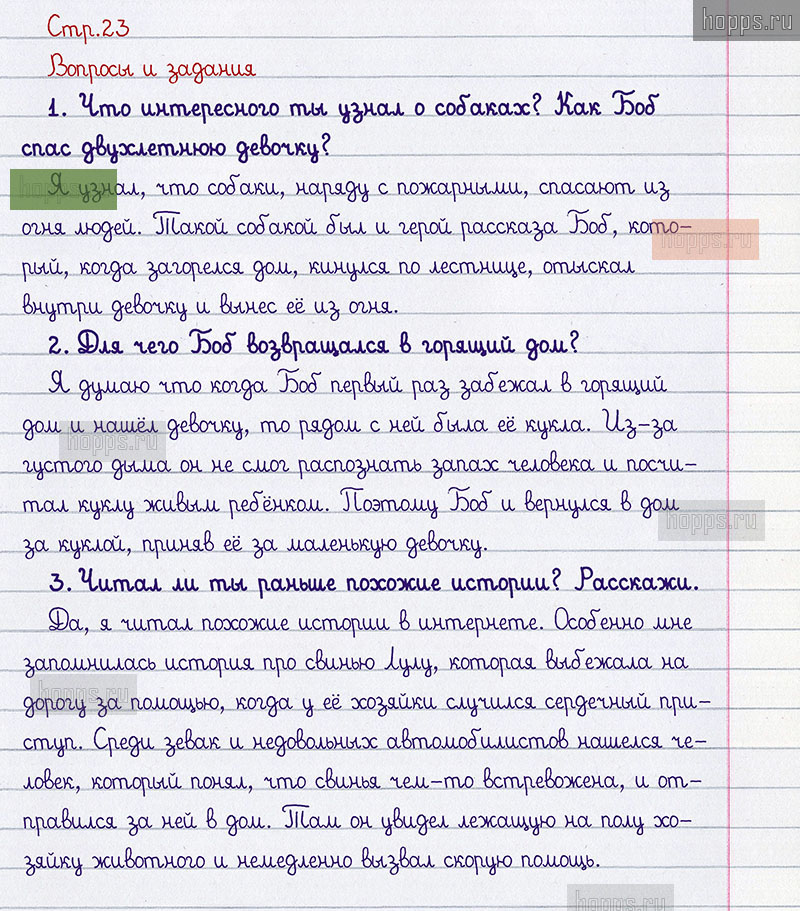 hopps.ru
Стр.23
Вопросы и задания
1. Что интересного ты узнал о собаках? Как Боб
спас двухлетнюю девочку?
Я узнал, что собаки, наряду с пожарными, спасают из
огня людей. Такой собакой был и герой рассказа Боб, кото-
рый, когда загорелся дом, кинулся по лестнице, отыскал
внутри девочку и вынес её из огня.
2. Для чего Боб возвращался в горящий дом?
Я думаю что когда Боб первый раз забежал в горящий
дом и нашёл девочку, то рядом с ней была её кукла. Из-за
густого дыма он не смог распознать запах человека и посчи-
тал куклу живым ребёнком. Поэтому Боб и вернулся в дом
за куклой, приняв её за маленькую девочку.
3. Читал ли ты раньше похожие истории? Расскажи.
Да, я читал похожие истории в интернете. Особенно мне
запомнилась история про свинью Лулу, которая выбежала на
дорогу за помощью, когда у её хозяйки случился сердечный при-
ступ. Среди зевак и недовольных автомобилистов нашелся че-
ловек, который понял, что свинья чем-то встревожена, и от-
правился за ней в дом. Там он увидел лежащую на полу хо-
зяйку животного и немедленно вызвал скорую помощь.
hopps.ru
hopps.ru
hopps.ru
hopps.ru
hopps.ru
hopps.ru